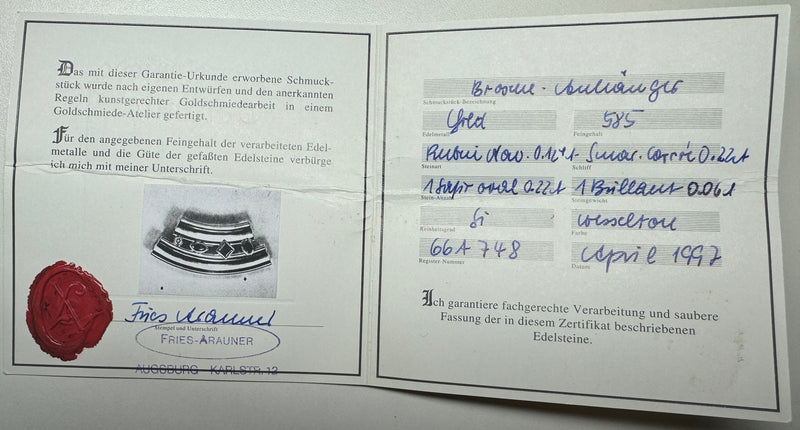 Das mit dieser Garantie-Urkunde erworbene Schmuck-
stück wurde nach eigenen Entwürfen und den anerkannten
Regeln kunstgerechter Goldschmiedearbeit in einem
Goldschmiede-Atelier gefertigt.
Für den angegebenen Feingehalt der verarbeiteten Edel-
metalle und die Güte der gefaßten Edelsteine verbürge
ich mich mit meiner Unterschrift.
Fries Arauner
Stempel und Unterschrift
FRIES-ARAUNER
AUGSBURG KARLSTR. 12
Brosche - Anhänger
Schmuckstück-Bezeichnung
Gold 585
Edelmetall Feingehalt
Rubin Nav. 0.12ct - Smar. Carrée 0.22ct
Steinart Schliff
1 Saph oval 0.22ct 1 Brillant 0.06ct
Stein-Anzahl Steingewicht
Si Wesselton
Reinheitsgrad Farbe
66A 748 April 1997
Register-Nummer Datum
Ich garantiere fachgerechte Verarbeitung und saubere
Fassung der in diesem Zertifikat beschriebenen
Edelsteine.